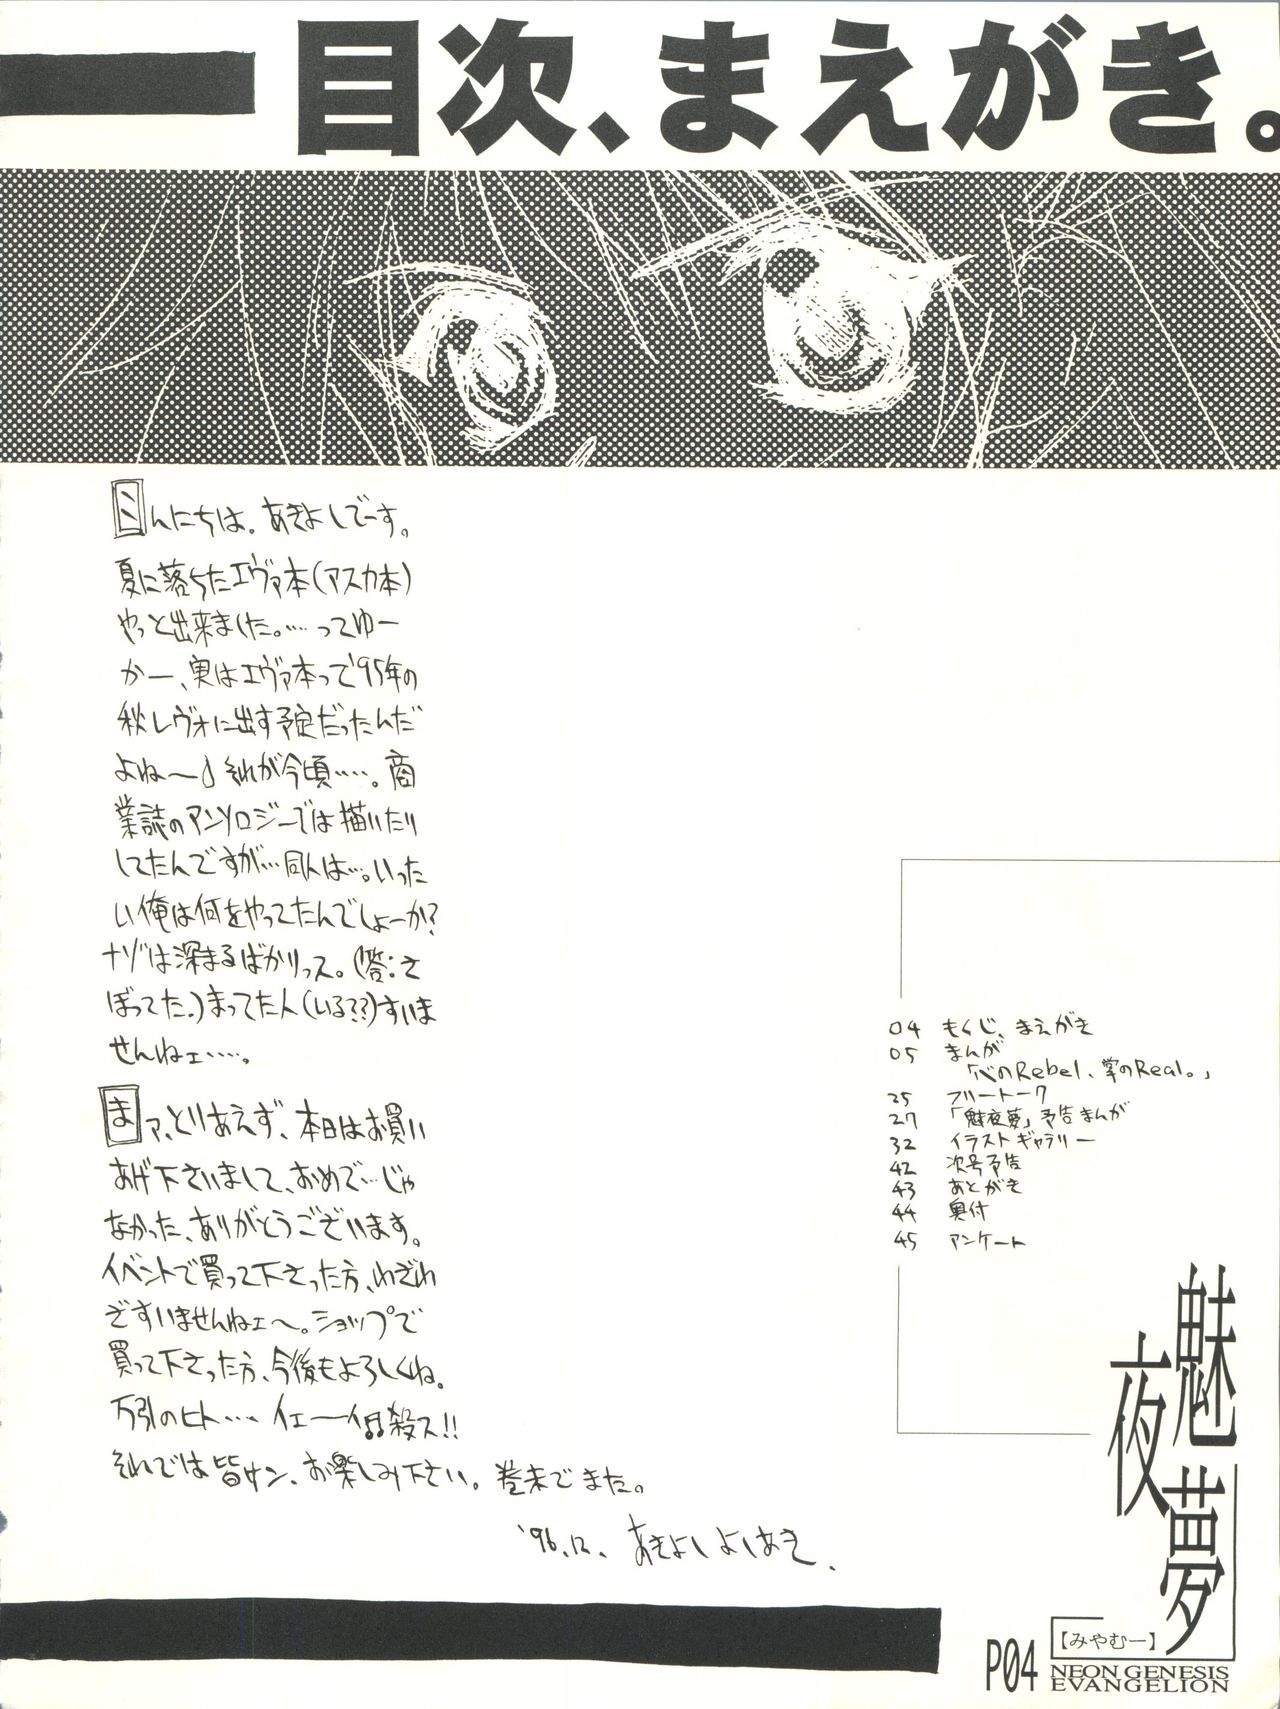 目次、まえがき。
こんにちは。あきよしでーす。
夏に落ちたエヴァ本(アスカ本)
やっと出来ました。……ってゆー
かー、実はエヴァ本って'95年の
秋レヴォに出す予定だったんだ
よね〜♪それが今頃……。商
業誌のアンソロジーでは描いたり
してたんですが…同人は…。いった
い俺は何をやってたんでしょーか?
ナゾは深まるばかりっス。(答:さ
ぼってた。)まってた人(いる??)すいま
せんねェ……。
まァ、とりあえず、本日はお買い
あげ下さいまして、おめで…じゃ
なかった、ありがとうございます。
イベントで買って下さった方、わざわ
ざすいませんねェ〜。ショップで
買って下さった方、今後もよろしくね。
万引のヒト…… イェーイ 殺ス!!
それでは皆サン、お楽しみ下さい。巻末でまた。
'96.12. あきよしよしあき.
04 もくじ、まえがき
05 まんが
「心のRebel、掌のReal。」
25 フリートーク
27 「魅夜夢」予告まんが
32 イラストギャラリー
42 次号予告
43 あとがき
44 奥付
45 アンケート
魅夜夢
【みやむー】
P04
NEON GENESIS
EVANGELION